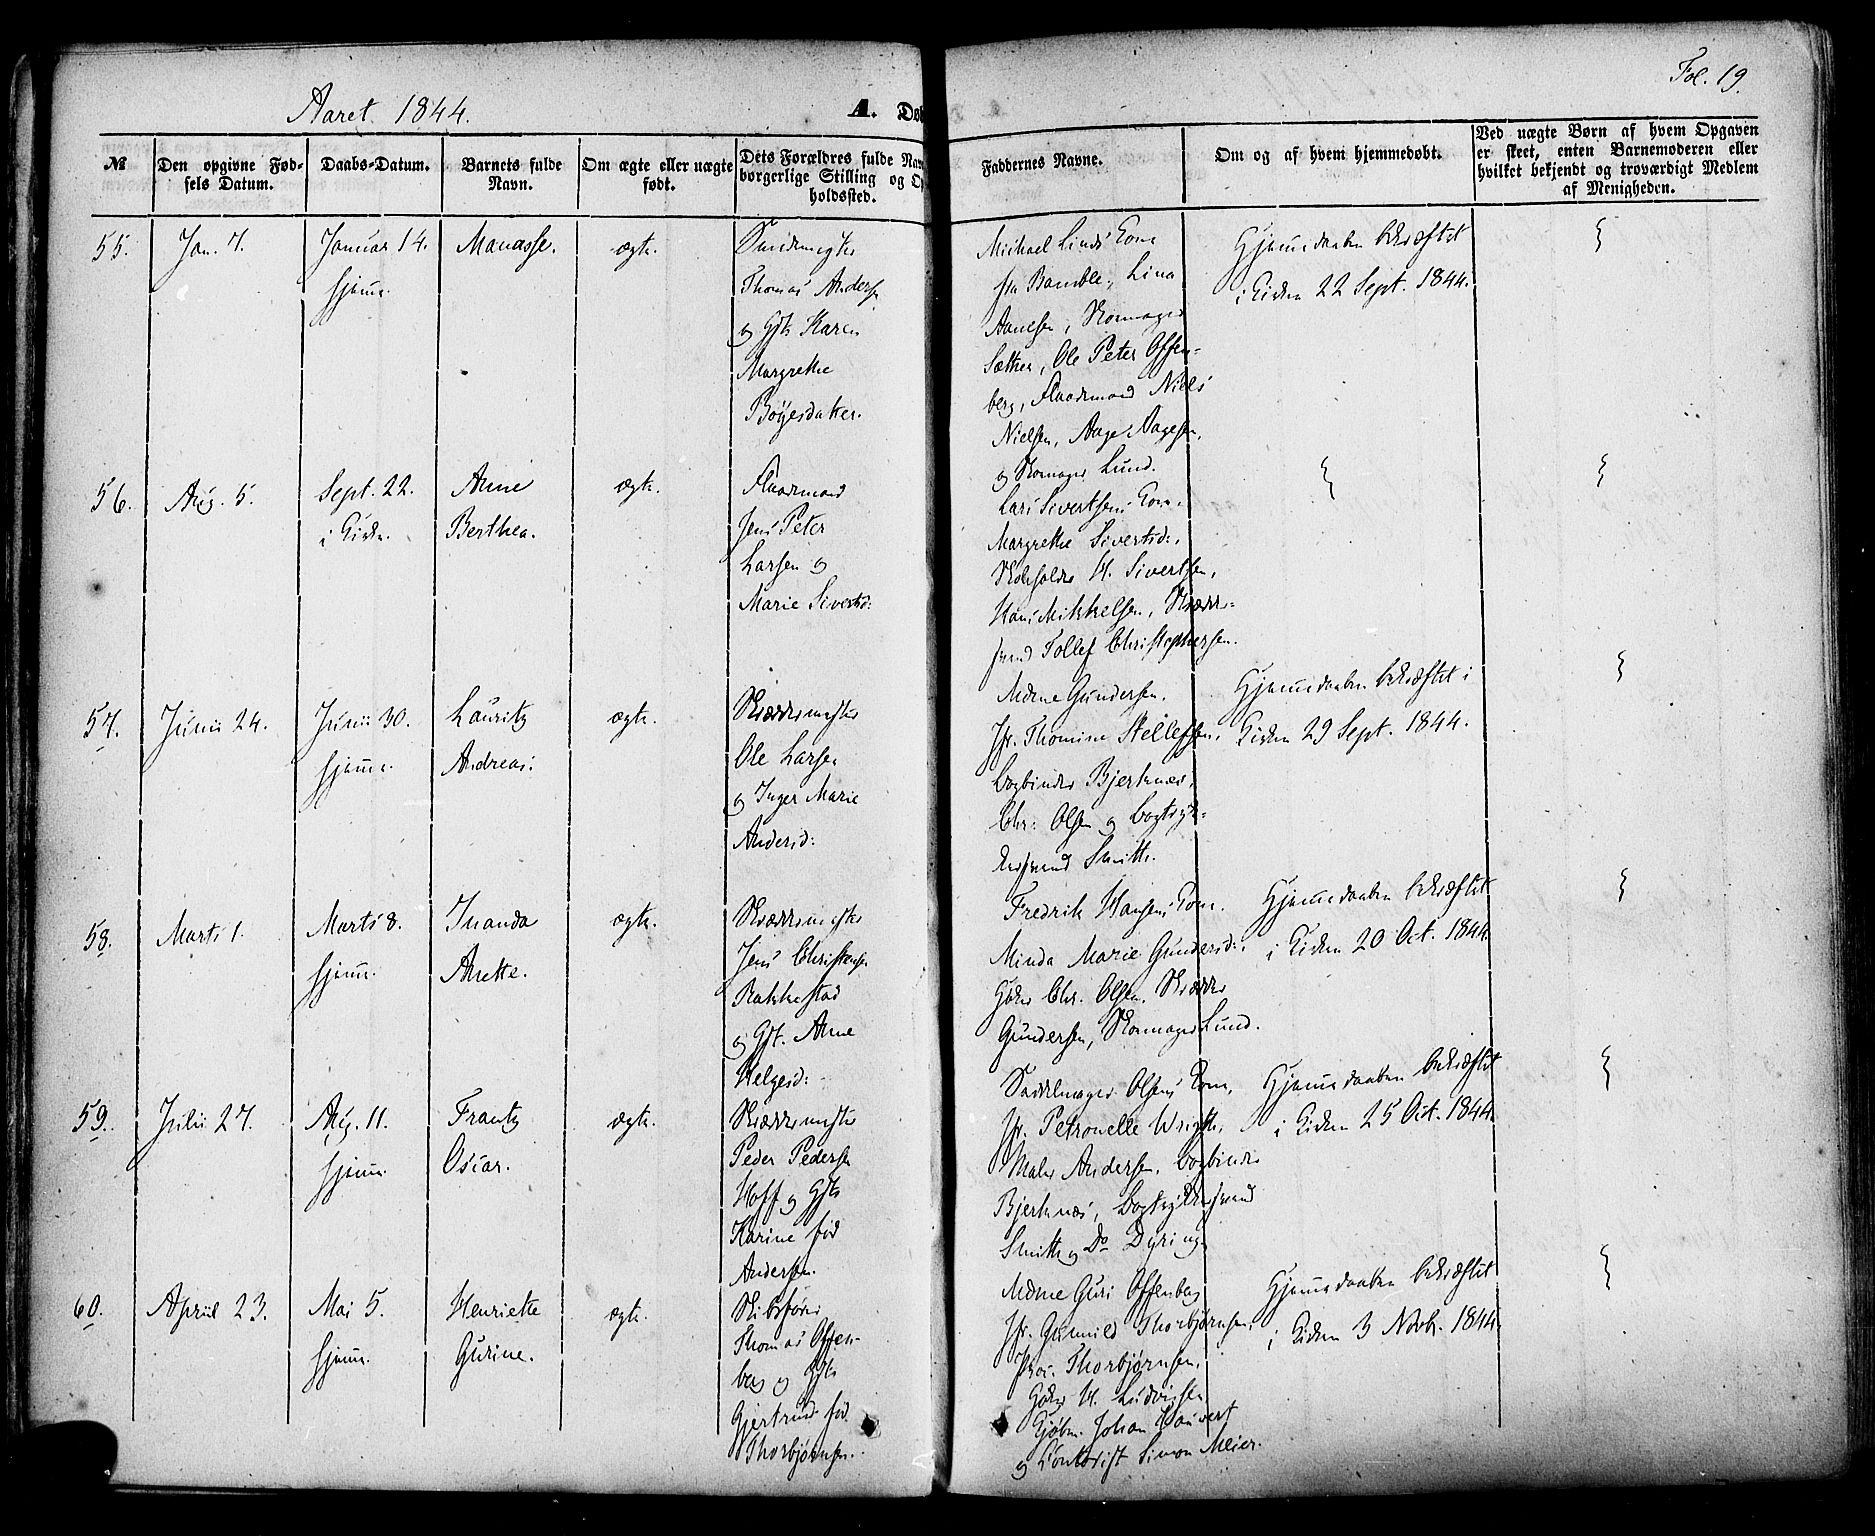 Aaret 1844.
A. Døb
Fol. 19.
№
Den opgivne Fød-
sels Datum.
Daabs-Datum.
Barnets fulde
Navn.
Om ægte eller uægte
født.
Dets Forældres fulde Nav
borgerlige Stilling og Op
holdssted.
Faddernes Navne.
Om og af hvem hjemmedøbt.
Ved uægte Børn af hvem Opgaven
er skeet, enten Barnemoderen eller
hvilket bekjendt og troværdigt Medlem
af Menigheden.
55.
Jan. 7.
Januar 14.
hjem.
Manasse.
ægte.
Smedemester
Thomas Anders
og Gjts Karen
Margrethe
Böyesdatter.
Michael Linds Kone
fra Bamble, Lina
Aanesen, Skomager
Sæther, Ole Peter Offen-
berg, Flaadmand Niels
Nielsen, Aage Aagesen,
og Skomager Lund.
Hjemmedaaben bekræftet
i Kirken 22 Sept. 1844.
56.
Aug. 5.
Sept. 22.
i Kirken.
Anne
Berthea.
ægte.
Flaadmand
Jens Peter
Larsen og
Marie Sivertsd:
Lars Sivertsens Kone.
Margrethe Sivertsd:,
Skoleholder H. Sivertsen,
Hans Mikkelsen, Skrædder-
svend Tollef Christophersen.
57.
Junii 24.
Junii 30.
hjem.
Lauritz
Andreas.
ægte.
Skræddermester
Ole Larsen
og Inger Marie
Andersd:
Mdme Gundersen.
Jfr. Thomine Stellefsen,
Bogbinder Bjerknæs,
Chr. Olsen og Bogtryk-
kersvend Smith.
Hjemmedaaben bekræftet i
Kirken 29 Sept. 1844.
58.
Marts 1.
Marts 8.
hjem.
Inanda
Anette.
ægte.
Skræddermester
Jens Christensen
Rakkestad
og Gjt. Anne
Helgesd:
Fredrik Hansens Kone.
Minda Marie Gundersd:,
Chr. Olsen, Skrædder
Gundersen, Skomager Lund.
Hjemmedaaben bekræftet
i Kirken 20 Oct. 1844.
59.
Julii 27.
Aug. 11.
hjem.
Frantz
Oscar.
ægte.
Skræddermester
Peder Pedersen
Hoff og Gjts
Karine fød
Andersen.
Saddelmager Olsens Kone,
Jfr. Petronelle Wright,
Maler Andersen, Bogbinder
Bjerknæs, Bogtrykkersvend
Smith og Do Dyring.
Hjemmedaaben bekræftet
i Kirken 25 Oct. 1844.
60.
April 23.
Mai 5.
hjem.
Henriette
Gurine.
ægte.
Skibsfører
Thomas Offen-
berg og Gjts
Gjertrud fød
Thorbjørnsen.
Mdme Guri Offenberg
Jfr. Gunnild Thorbjørnsen,
Thorbjørnsen,
H. Ludvigsen
Kjøbm. Johan Houvert
og Contorist Simon Meier.
Hjemmedaaben bekræftet
i Kirken 3 Novb. 1844.